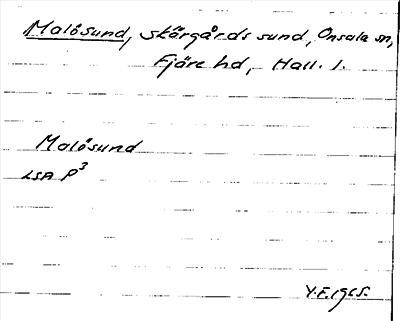 Malösund, skärgårds sund, Onsala sn,
Fjäre hd, Hall. l.
Malösund
LSA P³
Y.F. 1965.